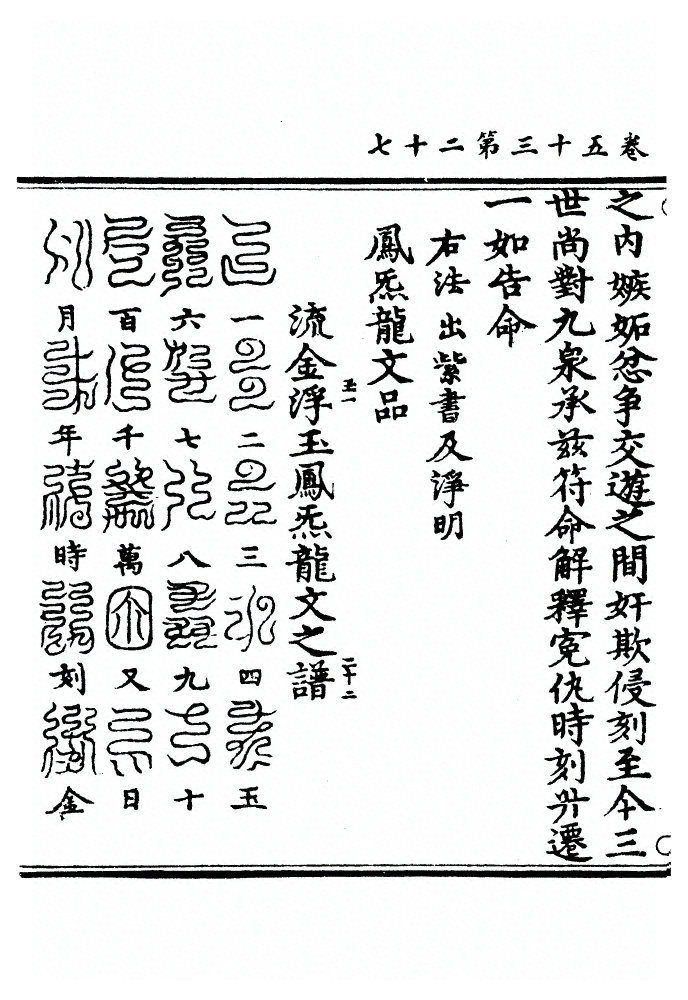 卷五十三第二十七
之内嫉妬忿争交遊之間奸欺侵刻至今三
世尚對九泉承兹符命解釋寃仇時刻升遷
一如告命
右法出紫書及淨明
鳳炁龍文品
流金浮玉鳳炁龍文之譜
五一
二十二
一二三四五
六七八九十
百千萬又日
月年時刻金